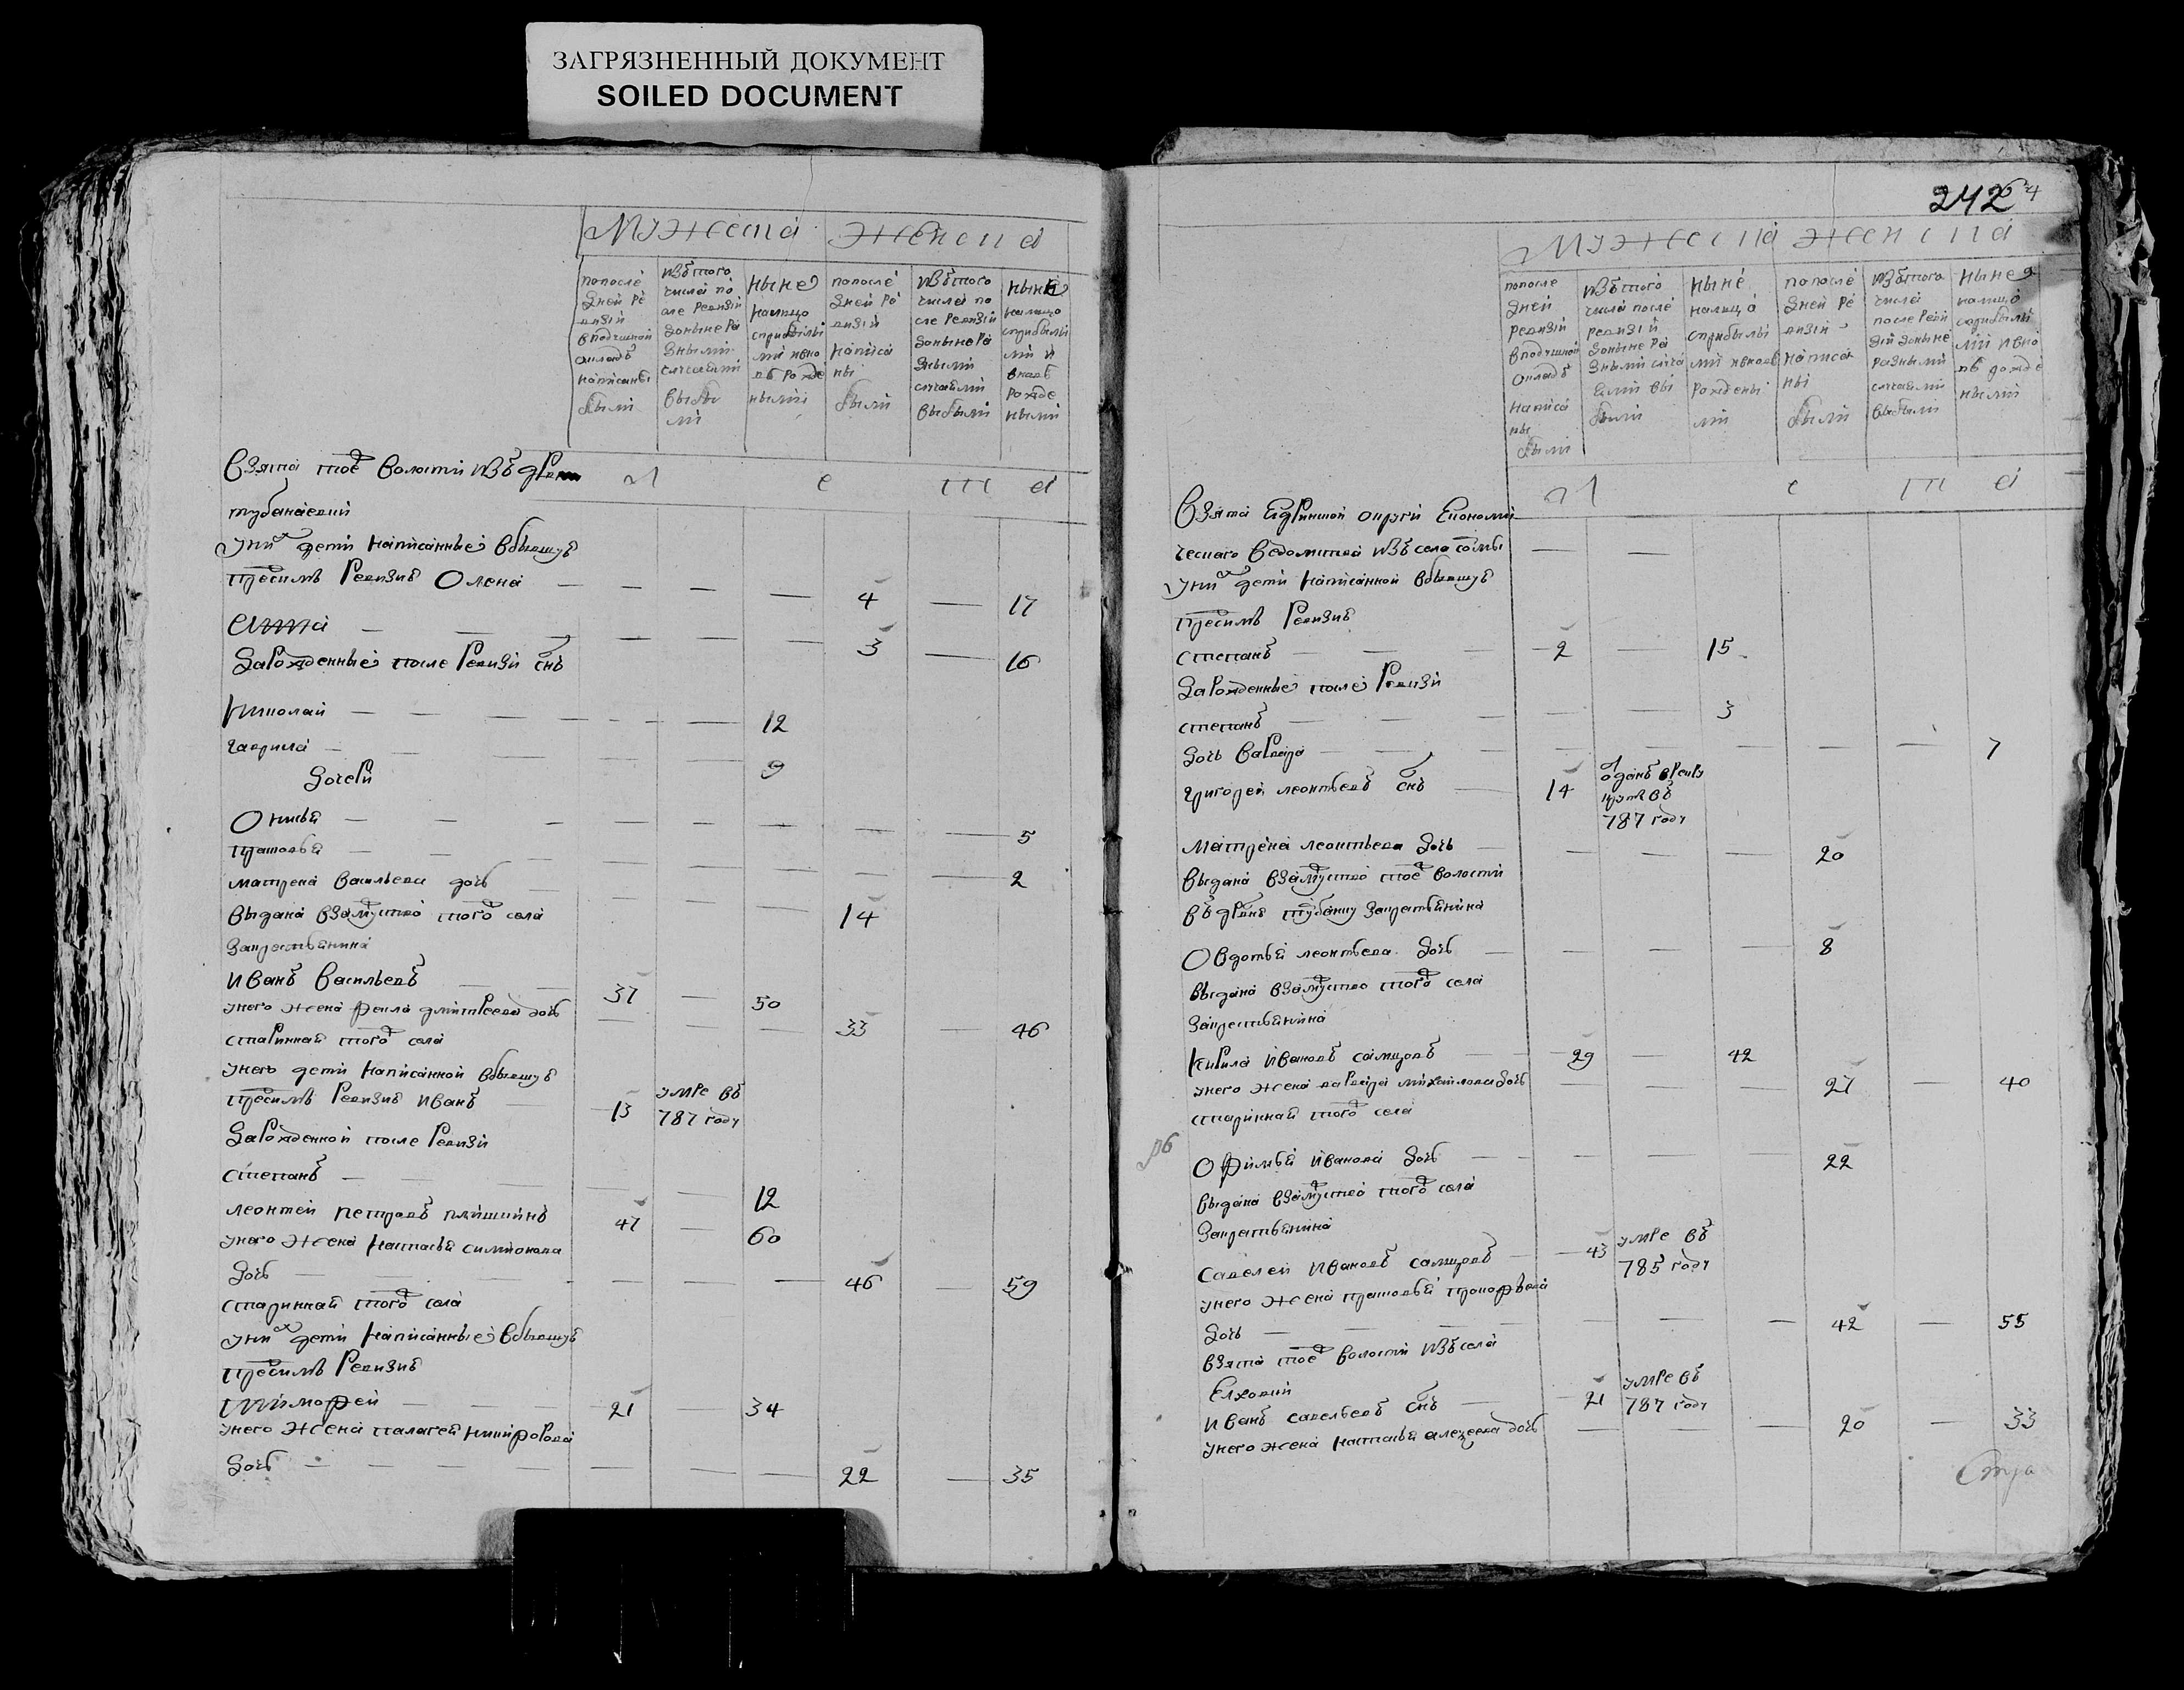 ЗАГРЯЗНЕННЫЙ ДОКУМЕНТ
SOILED DOCUMENT
Мужеска Женска
попослѣ дней ре визїи вподушной окладъ написаны были
изътого числа по сле ревизїи доныне ра зными случаями выбы ли
ныне налицо сприбылы ми ивно въ рожде ными
попосле дней ре визїи написа ны были
изътого числа по сле ревизїи доныне ра зными случаями выбыли
ныне налицо сприбылы ми и вновь рожде ными
Л е т а
Взята тое волости изъ дрвни
тубанаевки
уних дети написанные вбывшую
пресимъ ревизию Олена — 4 — 17
Анна — 3 — 16
Зарожденные после ревизи снъ
Николай — 12
гаврила — 9
Дочери
Онисья — 5
прасковья — 2
матрена васильева дочь — 14
выдана взамуство того села
закрестьянина
иванъ васильевъ 37 — 50
унего жена фекла дмитреева дочь — 33 — 46
старинная того села
унего дети написанной вбывшую
пресимъ ревизию иванъ — 13 умре въ 787 году
Зарожденной после ревизи
степанъ — 12
леонтей петровъ 47 — 60
унего жена настасья симионова
дочь — 46 — 59
старинная того села
уних дети написанные вбывшую
пресимъ ревизию
тимофей — 21 — 34
унего жена палагея никифорова
дочь — 22 — 35
242 64
Мужеска женска
попосле дней ревизїи вподушной окладъ написа ны были
изътого числа после ревизїи доныне ра зными случа ями вы были
ныне налицо сприбылы ми ивновь рождены ми
попосле дней ре визїи написа ны были
изътого числа после реви зїи доныне разными случаями выбыли
ныне налицо сприбылы ми ивно въ рожде ными
Л е т а
Взята округи Економи
ческаго ведомства изъ села
уних дети написанной вбывшую
пресимъ ревизию
степанъ — 2 — 15
Зарожденные после ревизи
степанъ — 3
дочь варвара — 7
григорей леонтьевъ снъ — 14 оданъ врекру ты въ 787 году
матрена леонтьева дочь — 20
выдана взамуство тое волости
въ дрвню закрестьянина
Овдотья леонтьева дочь — 8
выдана взамуство того села
закрестьянина
кирила ивановъ 29 — 42
унего жена варвара михайлова дочь — 27 — 40
старинная того села
Офимья иванова дочь — 22
выдана взамуство того села
закрестьянина
савелей ивановъ — 43 умре въ 785 году
унего жена прасковья прокофьева
дочь — 42 — 55
взята тое волости изъ села
Елховки
иванъ савельевъ снъ — 21 умре въ 787 году
унего жена настасья алексеева дочь — 20 — 33